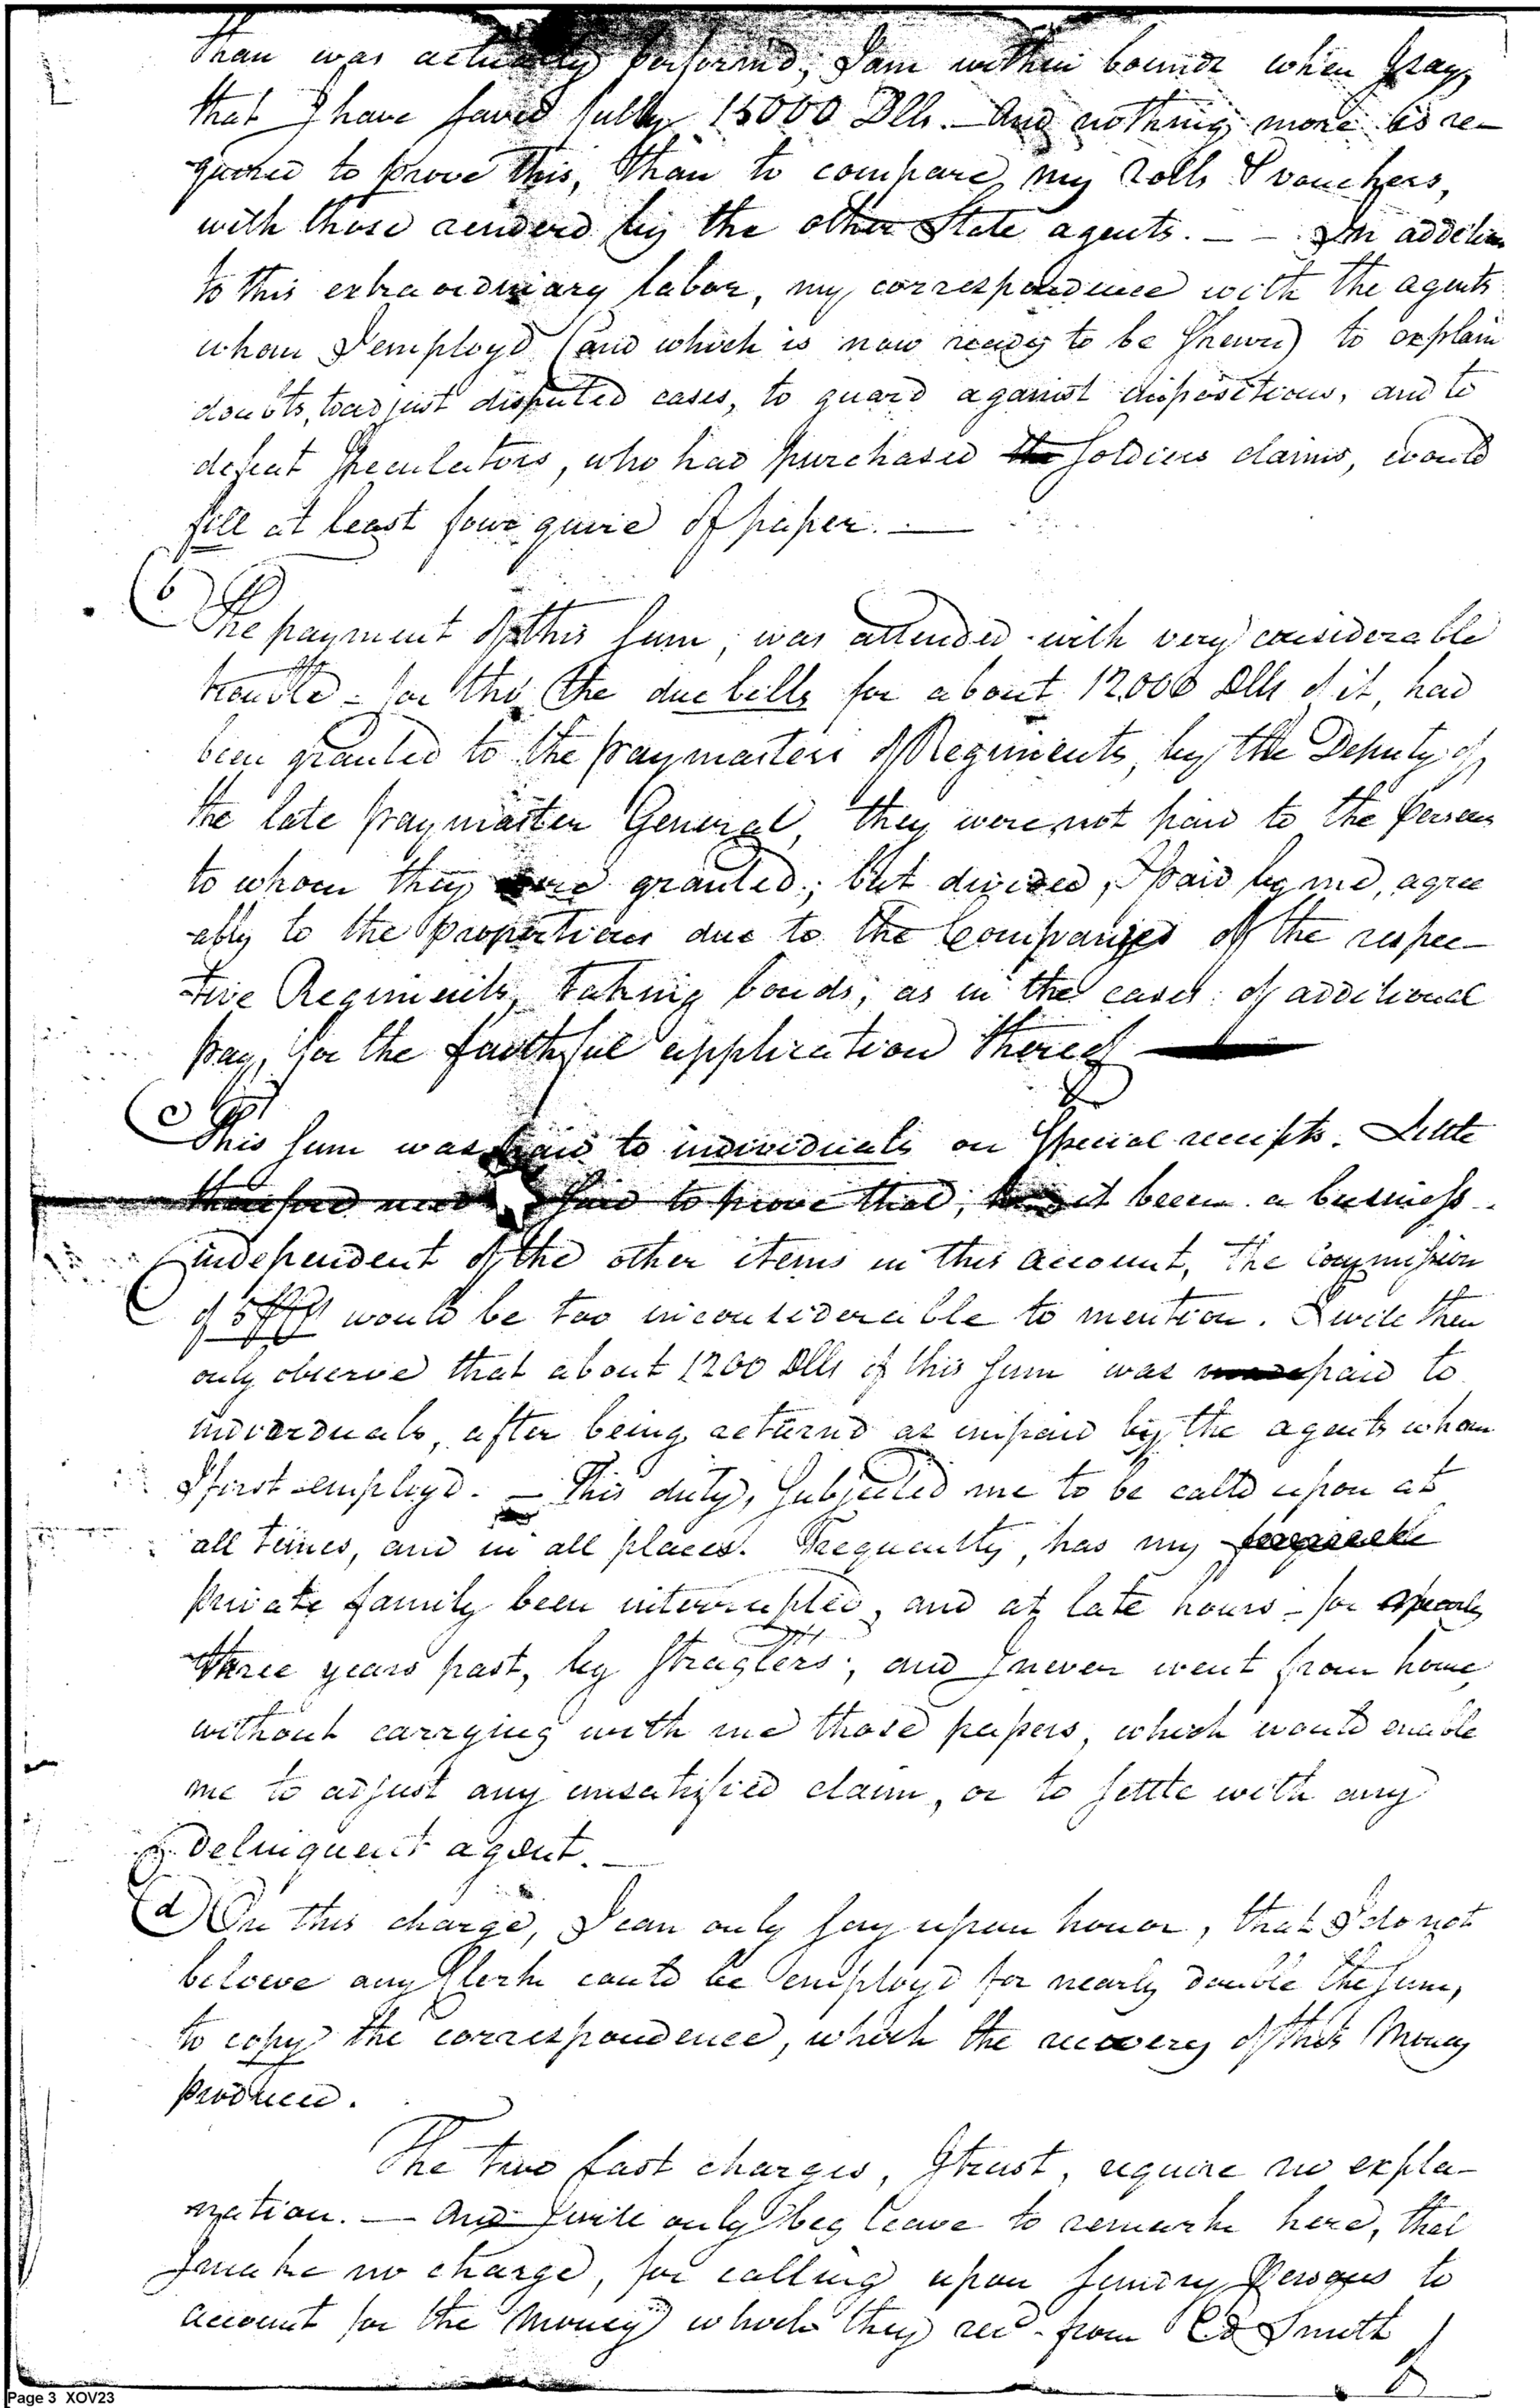 than was actually performd; I am within bounds when I say,
that I have saved fully 15000 Dlls. — And nothing more is re-
quired to prove this, than to compare my rolls & vouchers,
with those renderd by the other State agents. — — In addition
to this extraordinary labor, my correspondence with the agents
whom I employd (and which is now ready to be shewn) to explain
doubts, to adjust disputed cases, to guard against impositions, and to
defeat Speculators, who had purchased the Soldiers claims, would
fill at least four quire of paper. —
(b)
The payment of this sum, was attended with very considerable
trouble - for tho the due bills for about 12000 Dlls of it, had
been granted to the paymasters of Regiments, by the Deputy of
the late paymaster General, they were not paid to the persons
to whom they were granted; but divided, & paid by me, agree
ably to the proportions due to the Companies of the respec-
tive Regiments, taking bonds, as in the cases of additional
pay, for the faithful application thereof —
(c)
This sum was paid to individuals on Special receipts. Little
therefore need be said to prove that, had it been a business
independent of the other items in this account, the Commission
of 5 would be too inconsiderable to mention. I will then
only observe that about 1200 Dlls of this sum was paid to
individuals, after being returnd as unpaid by the agents whom
I first employd. — This duty, subjected me to be calld upon at
all times, and in all places. Frequently, has my
private family been interrupted, and at late hours - for nearly
three years past, by Straglers; and I never went from home,
without carrying with me those papers, which would enable
me to adjust any unsatisfied claim, or to settle with any
delinquent agent. —
(d) On this charge, I can only say upon honor, that I do not
beleive any Clerk could be employd for nearly double the sum,
to copy the correspondence, which the recovery of this Money
produced.
The two last charges, I trust, require no expla-
nation. — And I will only beg leave to remark here, that
I make no charge, for calling upon sundry persons to
account for the Money which they recd from Smith
Page 3 XOV23